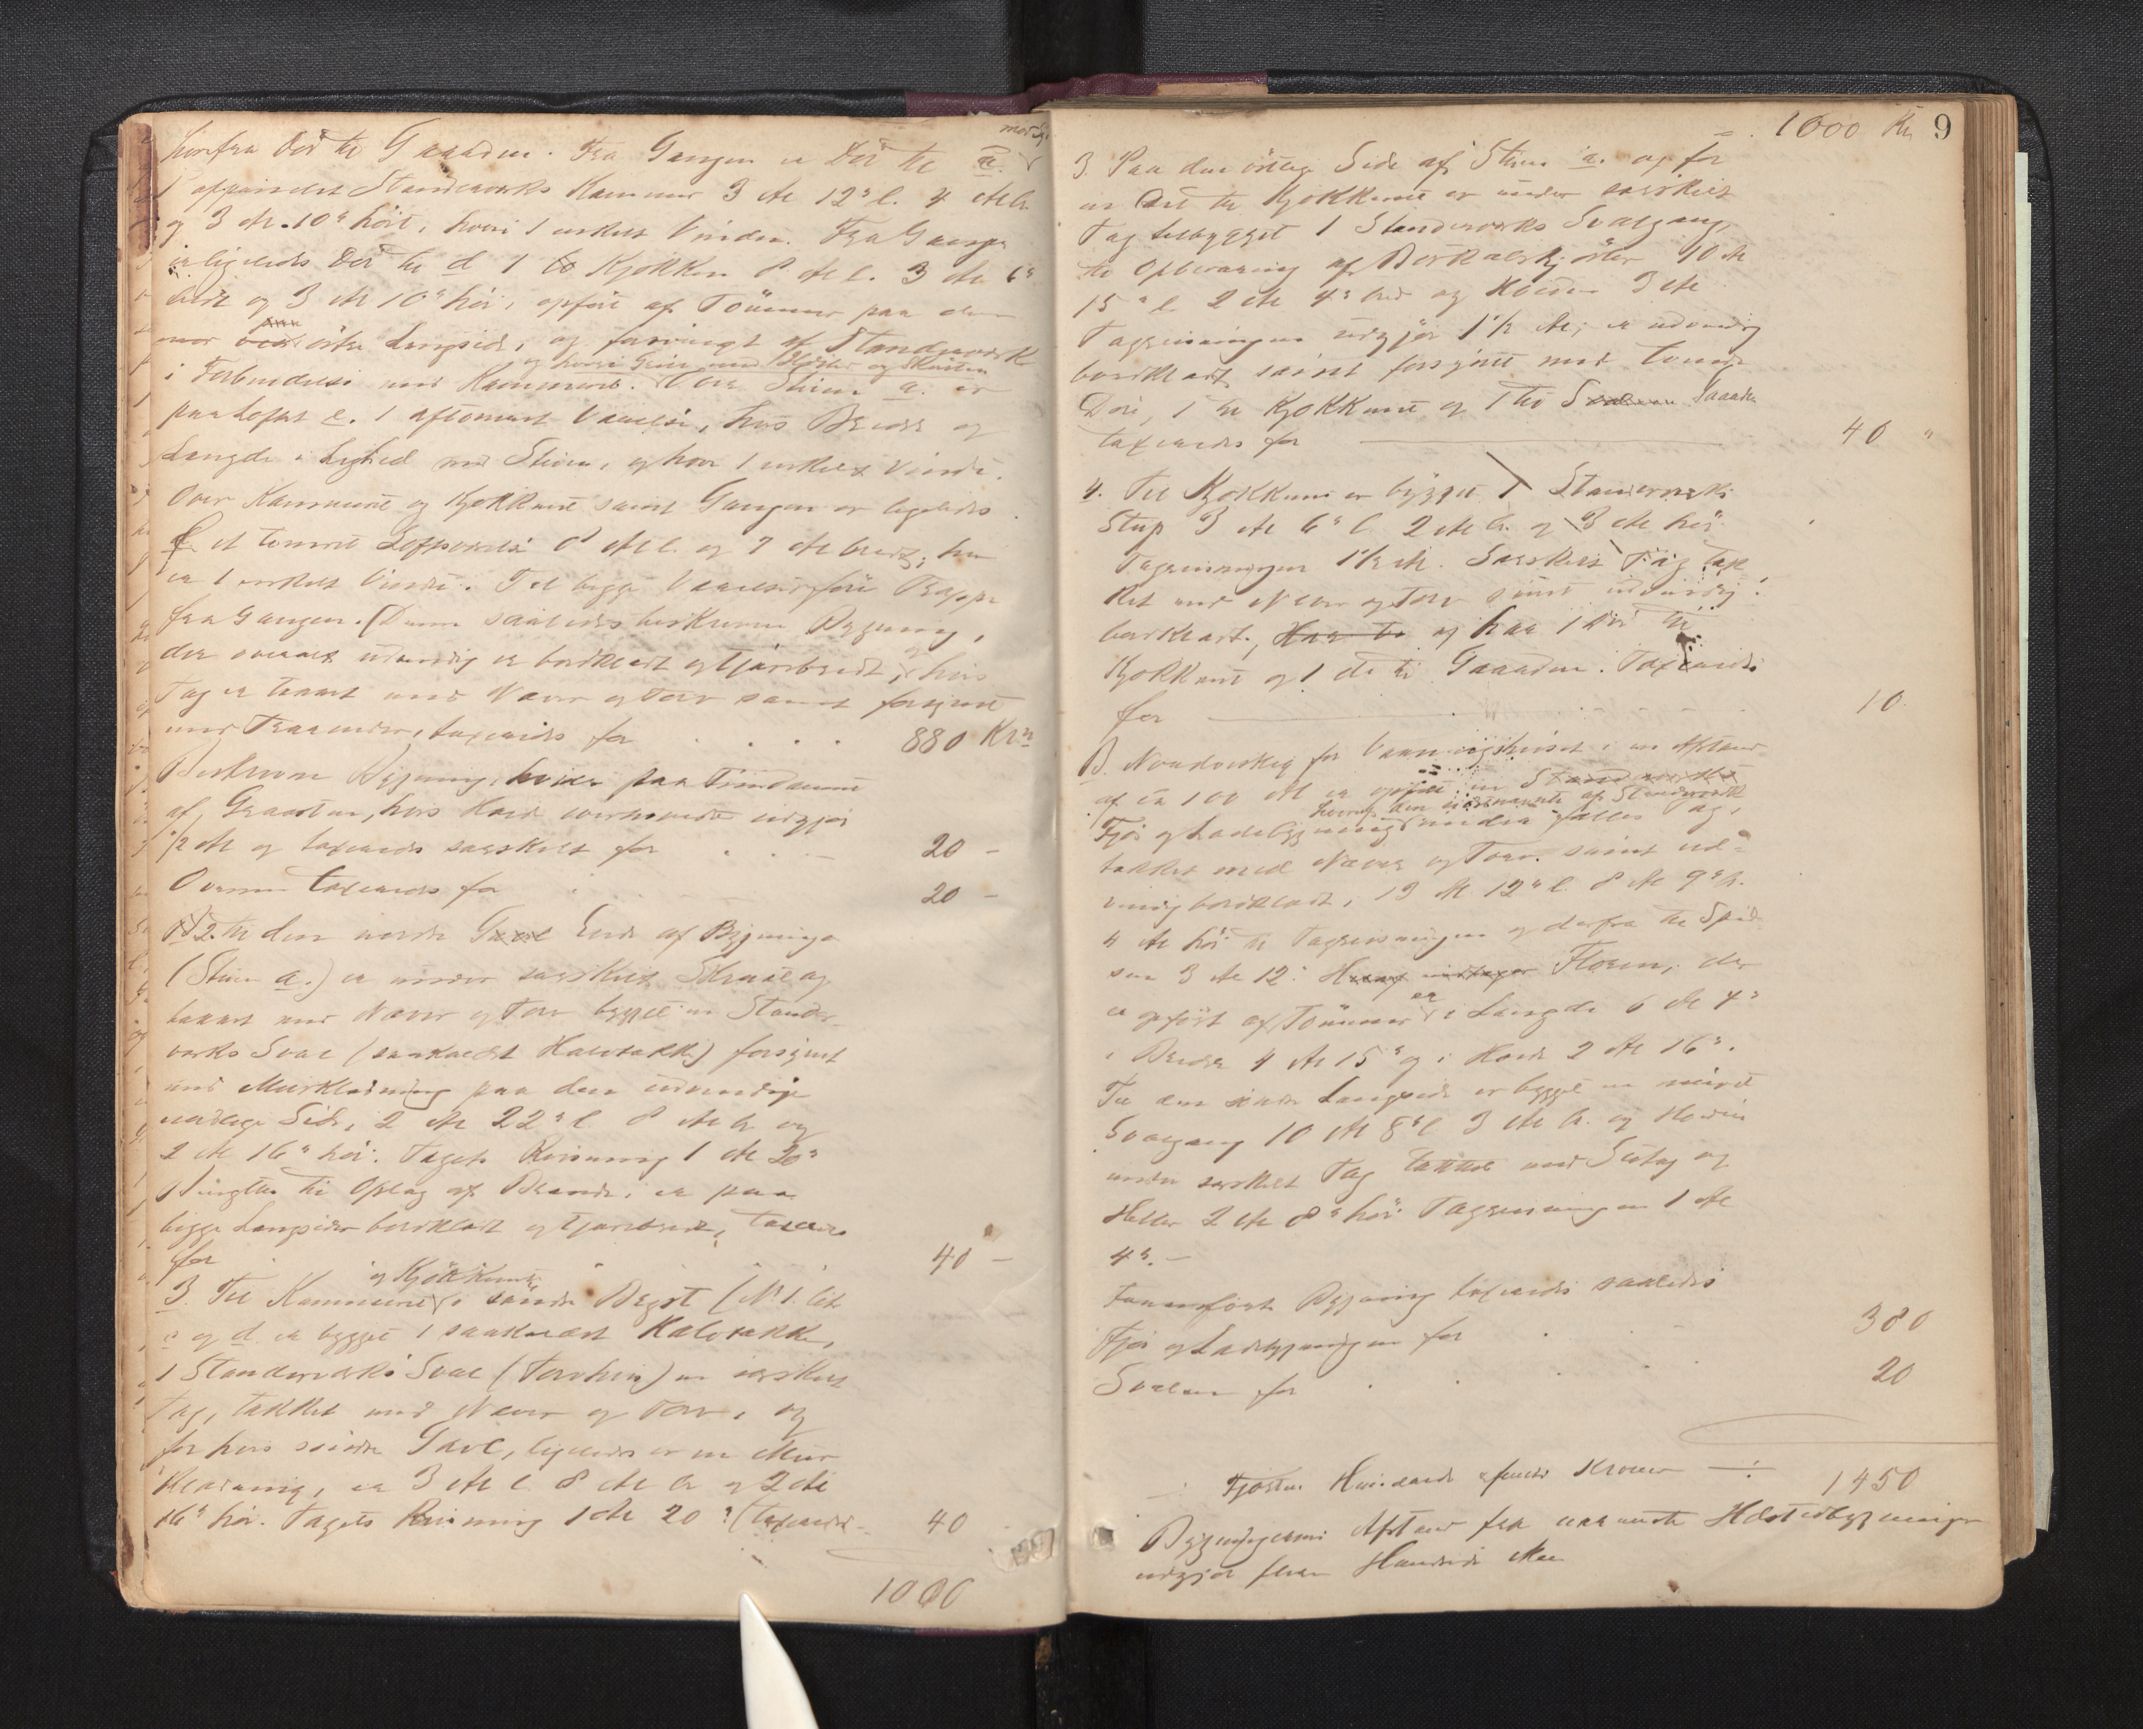 herfra Dør til Gaarden. Fra Gangen er Dør til
1 afpanelet Standerværks Kammer 3 Al 12" l. 4 Al b.
og 3 Al. 10" høit, hvori 1 enkelt Vindu. Fra Gangen
er ligeledes Dør til d 1 Kjøkken 8 Al l. 3 Al 6"
bredt og 3 Al 10" høi, opført af Tømmer paa den
østre Langside, og forøvrigt af Standerværk
i Forbindelse med Kammeret. Over Stuen a. er
paa Loftet e. 1 aftømret Værelse, hvis Bredde og
Længde i Lighed med Stuen, og hvor 1 enkelt Vindu.
Over Kammeret og Kjøkkenet samt Gangen er ligeledes
f. et tømret Loftsværelse 8 Al l. og 7 Al bredt, her
er 1 enkelt Vindu. Til begge Værelser fører Trappe
fra Gangen. (Denne saaledes beskrevne Bygning,
der overalt udvendig er bordklædt og tjærebredt, hvis
Tag er tækket med Næver og Torv samt forsynet
med Tagrender, taxeredes for . . . . 880 Krr
Beskrevne Bygning, hviler paa Fundament
af Graasten, hvis Høide overhovedet udgjør
1/2 Al og taxeredes særskilt for . . . 20 –
Ovnene taxeredes for . . . 20 –
2. til den nordre Ende af Bygningen
(Stuen a.) er under særskilt Skraatag
tækket med Næver og Torv bygget en Stander-
værks Sval (saakaldet Halvtække) forsynet
med Murklædning paa den udvendige
nordlige Side, 2 Al 22" l 8 Al b og
2 Al 16" høi. Tagets Reisning 1 Al 20"
Benyttes til Oplag af Brænde, er paa
begge Langsider bordklædt og tjærebredt, taxeres
for 40 –
og Kjøkkenet
3. Til Kammeret i søndre Bygn (No 1. lit
c og d er bygget 1 saakaldet Halvtække,
1 Standerværks Sval (Torvhus) en særskilt
Tag, tækket med Næver og Torv, og
for hvis søndre Gavl, ligeledes er en Mur
klædning, er 3 Al l. 8 Al b og 2 Al
16" høi. Tagets Reisning 1 Al 20" (taxeredes 40
1000
1000 Kr 9
3. Paa den østlige Side af Stuen a. og for
en Del til Kjøkkenet er under særskilt
Tag tilbygget 1 Standerværks Svalgang,
til Opbevaring af 10 Al
15" l 2 Al 4" bred og Høiden 3 Al
Tagreisningen udgjør 1 1/2 Al, er udvendig
bordklædt samt forsynet med tvende
Døre, 1 til Kjøkkenet og 1 til Gaarden
taxeredes for 40 "
4. Til Kjøkkenet er bygget 1 Standerværks
3 Al 6" l 2 Al b. og 3 Al høi
Tagreisningen 1 1/2 Al. Særskilt Tag tæk
ket med Næver og Torv samt udvendig
bordklædt, og har 1 Dør til
Kjøkkenet og 1 do til Gaarden. Taxeredes
for 10.
B. Nordvestlig for Vaaningshuset i en Afstand
af ca 100 Al er opført en
hvoraf den sidstnævnte af Standerværk
Fjøs og Ladebygning under fælles Tag,
tækket med Næver og Torv. samt ud-
vendig bordklædt, 19 Al. 12" l. 8 Al 9" b.
4 Al høi til Tagreisningen og derfra til Spid
sen 3 Al 12". Floren, der
er opført af Tømmer er i Længde 6 Al 4"
i Bredde 4 Al 15" og i Høide 2 Al 16".
Til den søndre Langside er bygget en
Svalgang 10 Al 8" l 3 Al b. og
under særskilt Tag tækket med Sutag og
Heller 2 Al 8" høi Tagreisningen 1 Al
4". –
Bygning taxeredes saaledes
Fjøs og Ladebygningen for . . . 380
Svalen for . . . 20
Fjorten Hundrede femti Kroner 1450
Bygningernes Afstand fra
udgjør flere Hundrede Alen